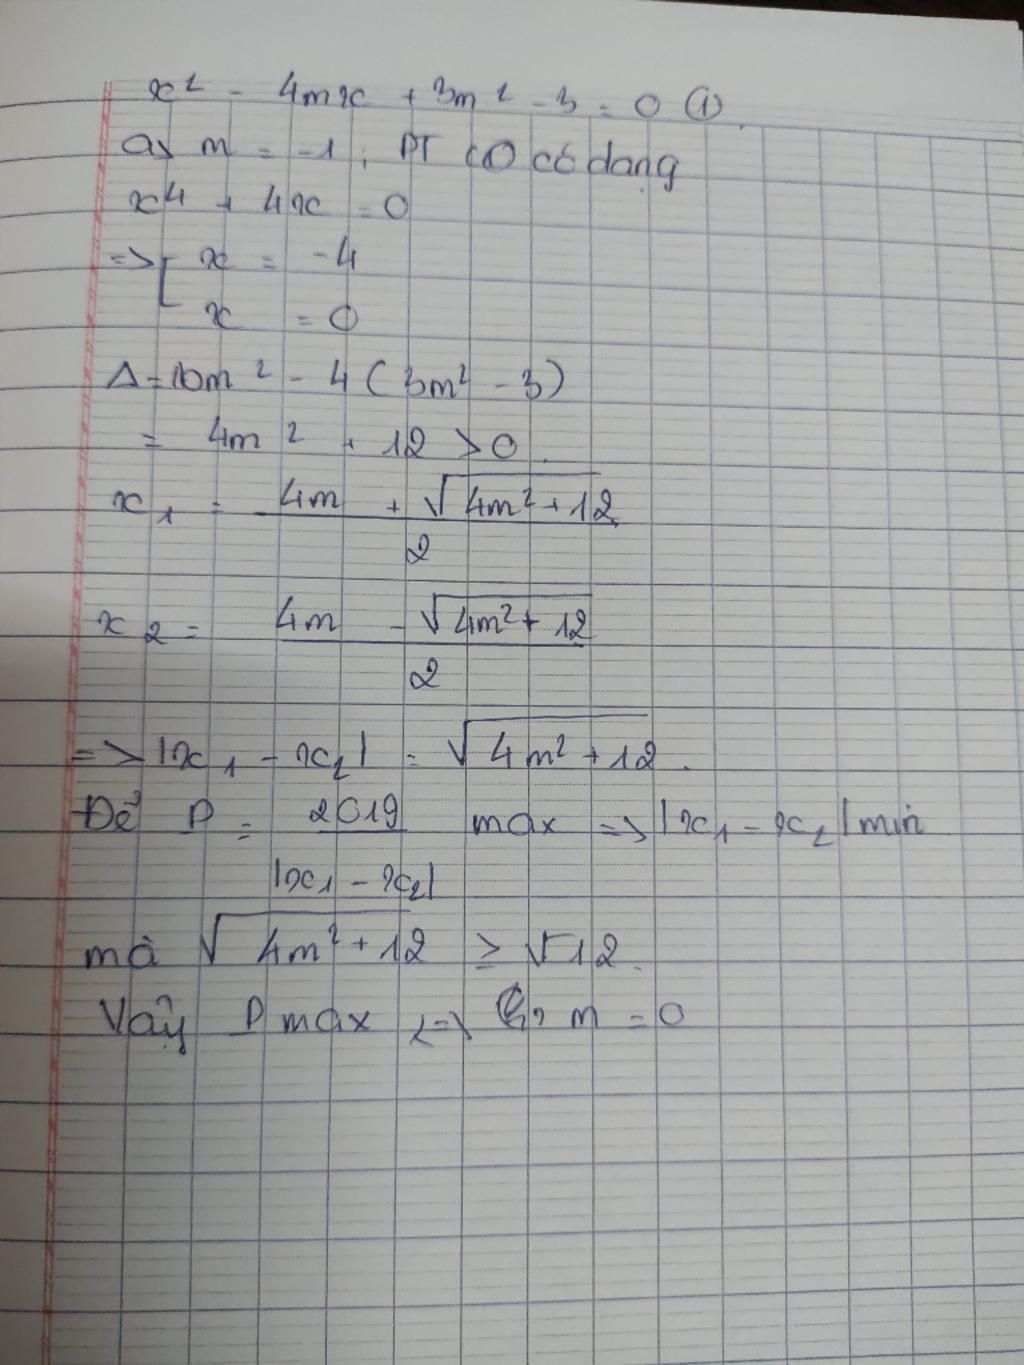 x² - 4mx + 3m² - 3 = 0 ①
a, m = -1; PT (1) có dạng
x⁴ + 4x = 0
=> [ x = -4
x = 0
Δ = 16m² - 4(3m² - 3)
= 4m² + 12 > 0.
x₁ = (4m + √(4m² + 12)) / 2
x₂ = (4m - √(4m² + 12)) / 2
=> |x₁ - x₂| = √(4m² + 12).
Để P = 2019 / |x₁ - x₂| max => |x₁ - x₂| min
mà √(4m² + 12) ≥ √12.
Vậy P max <=> m = 0